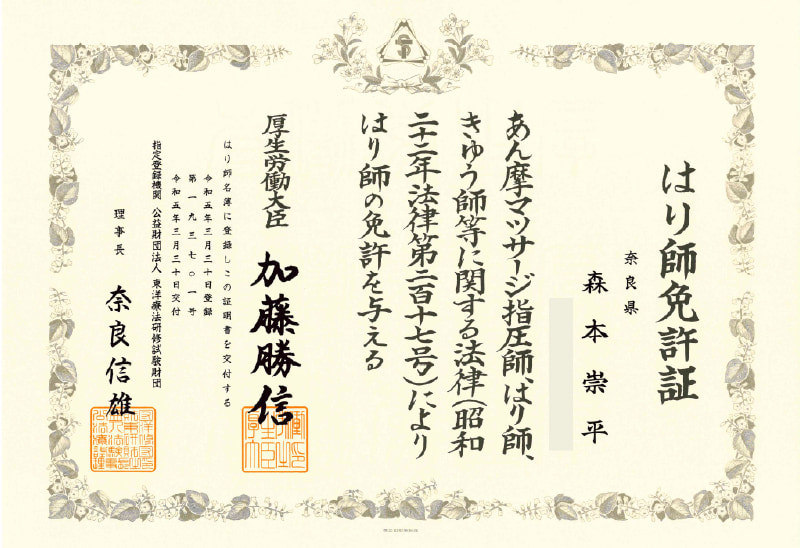 はり師免許証
奈良県
森本崇平
あん摩マッサージ指圧師、はり師、
きゅう師等に関する法律(昭和
二十二年法律第二百十七号)により
はり師の免許を与える
厚生労働大臣 加藤勝信
はり師名簿に登録しこの証明書を交付する
令和五年三月三十日登録
第一九三七〇一号
令和五年三月三十日交付
指定登録機関 公益財団法人 東洋療法研修試験財団
理事長 奈良信雄